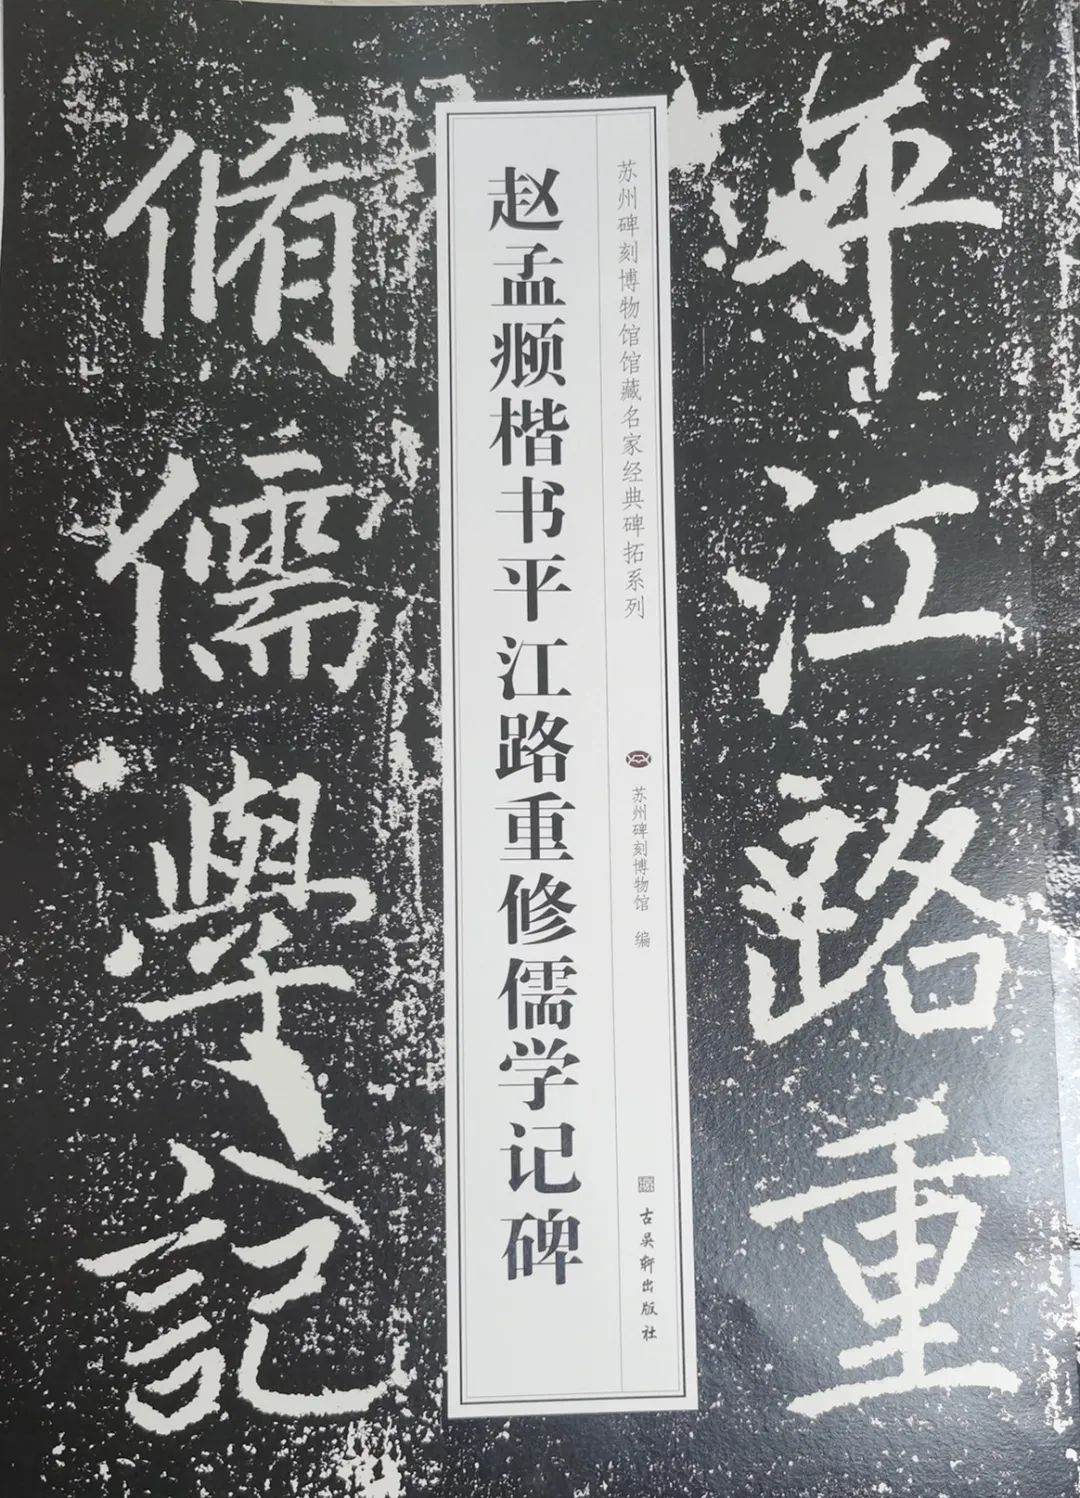 平江路重
脩儒學記
苏州碑刻博物馆馆藏名家经典碑拓系列
苏州碑刻博物馆 编
古吴轩出版社
赵孟𫖯楷书平江路重修儒学记碑